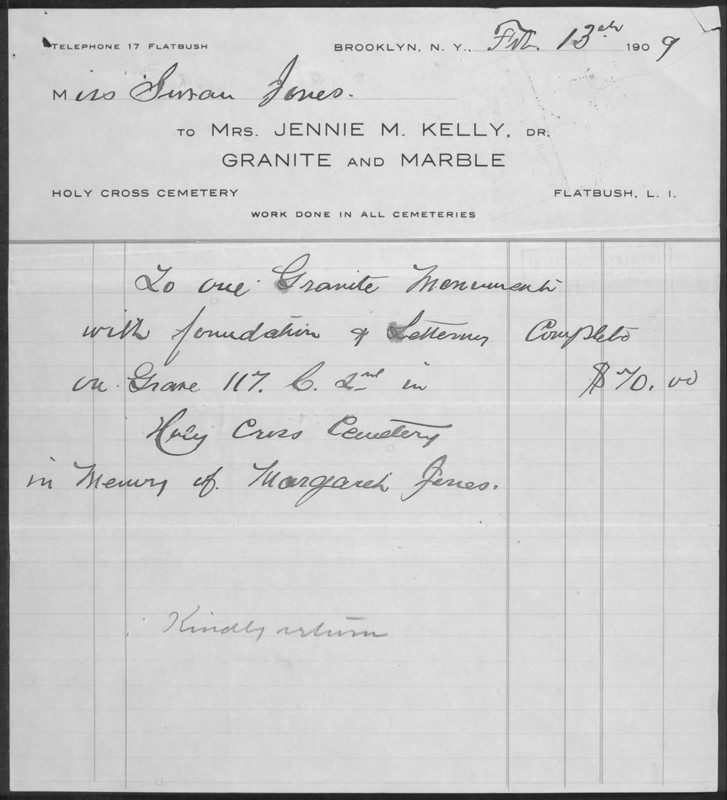 TELEPHONE 17 FLATBUSH BROOKLYN, N. Y., Feb. 13th 1909
Miss Susan Jones.
TO MRS. JENNIE M. KELLY, DR.
GRANITE AND MARBLE
HOLY CROSS CEMETERY FLATBUSH, L. I.
WORK DONE IN ALL CEMETERIES
To one Granite Monument
with foundation & Lettering Complete
on Grave 117. C. 2nd in $70.00
Holy Cross Cemetery
in Memory of Margaret Jones.
Kindly return